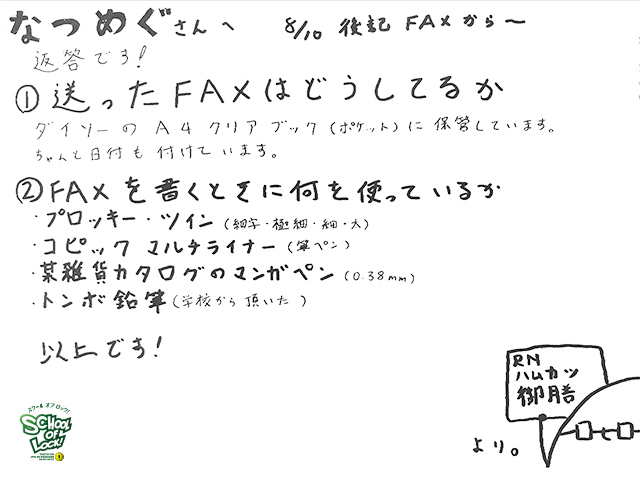 なつめぐさんへ 8/10 後記 FAXから〜
返答です！
①送ったFAXはどうしてるか
ダイソーのA4クリアブック(ポケット)に保管しています。
ちゃんと日付も付けています。
②FAXを書くときに何を使っているか
・プロッキー・ツイン(細字・極細・細・太)
・コピックマルチライナー(筆ペン)
・某雑貨カタログのマンガペン(0.38mm)
・トンボ鉛筆(学校から頂いた)
以上です！
RN
ハムカツ
御膳
より。
スクール オブ ロック!
SCHOOL
OF
LOCK!